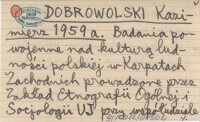 DOBROWOLSKI Kazi-
mierz 1959 a. Badania po-
wojenne nad kulturą lud-
ności polskiej w Karpatach
Zachodnich prowadzone przez
Zakład Etnografii Ogólnej i
Socjologii UJ przy współudziale